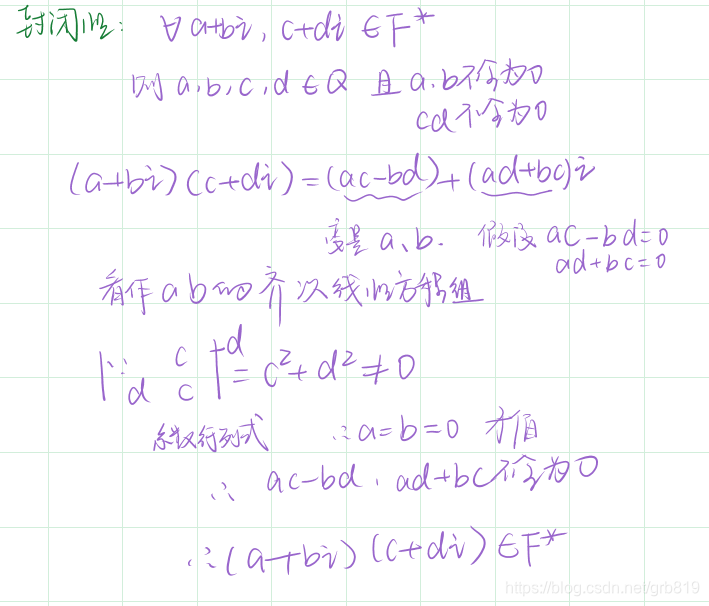 封闭性: ∀ a+bi, c+di ∈F*
则 a,b,c,d ∈ Q 且 a.b不全为0
cd不全为0
(a+bi)(c+di)=(ac-bd)+(ad+bc)i
变量 a、b. 假设 ac-bd=0
ad+bc=0
看作ab的齐次线性方程组
|∵ c -d
d c | = c²+d²≠0
系数行列式 ∴a=b=0 矛盾
∴ ac-bd, ad+bc不全为0
∴(a+bi)(c+di)∈F*
https://blog.csdn.net/grb819